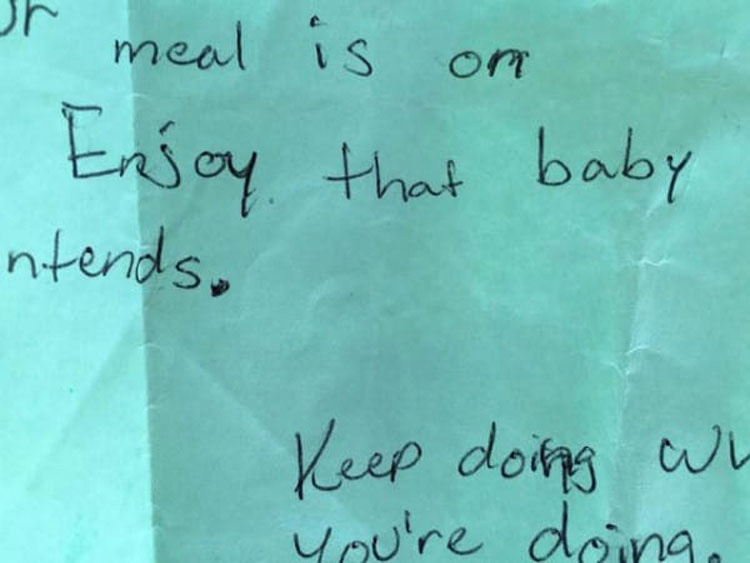 ur meal is on
Enjoy that baby
ntends.
Keep doing wh
you're doing.